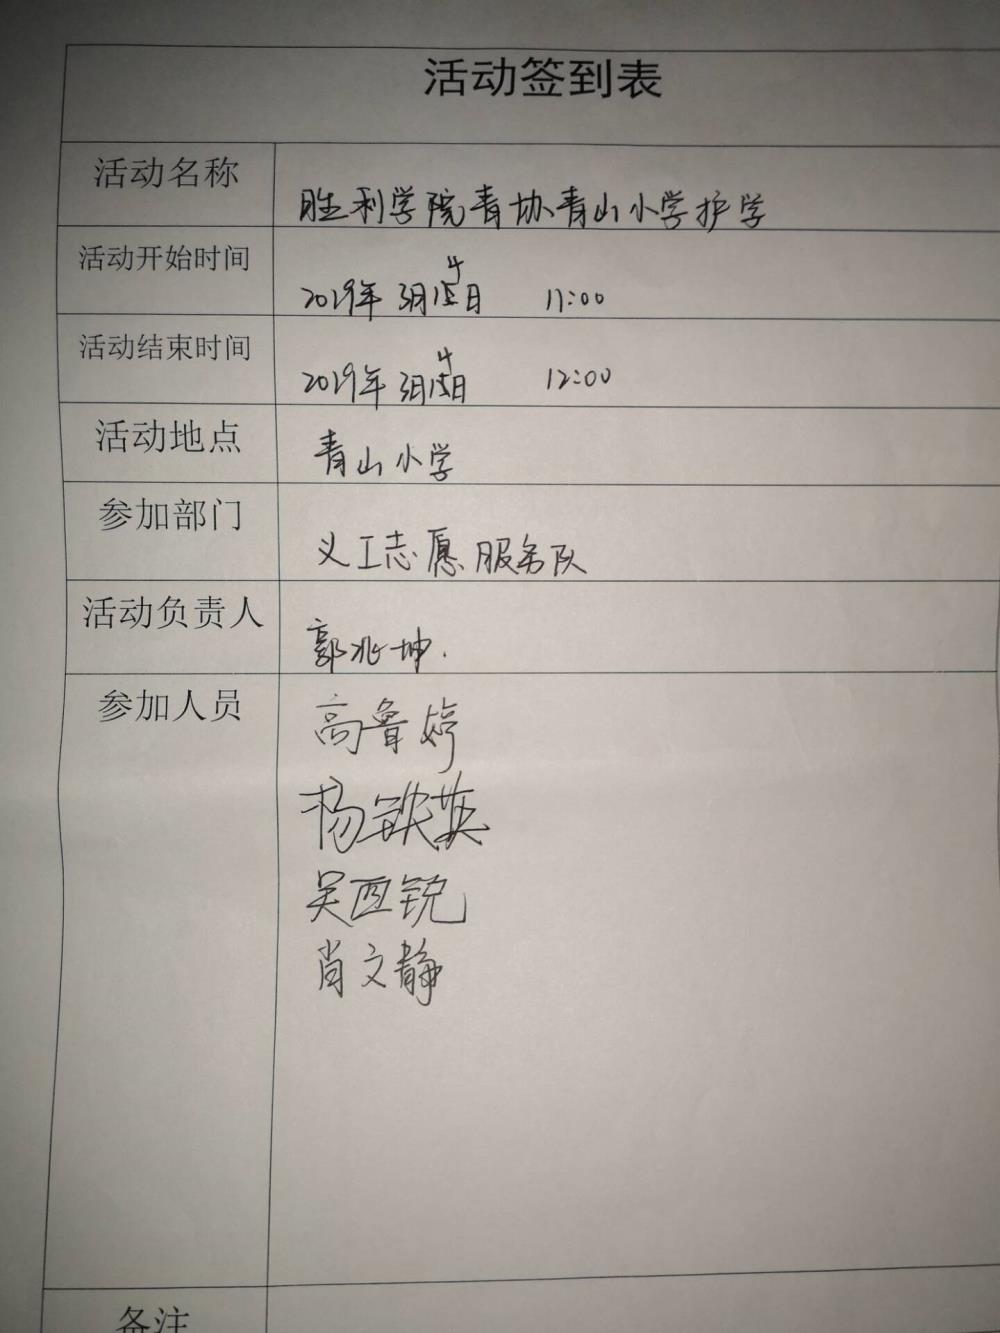 活动签到表
活动名称
胜利学院青协青山小学护学
活动开始时间
4
2019年 3月15日 11:00
活动结束时间
4
2019年 3月15日 12:00
活动地点
青山小学
参加部门
义工志愿服务队
活动负责人
郭兆坤.
参加人员
高鲁婷
杨铁英
吴西锐
肖文静
备注